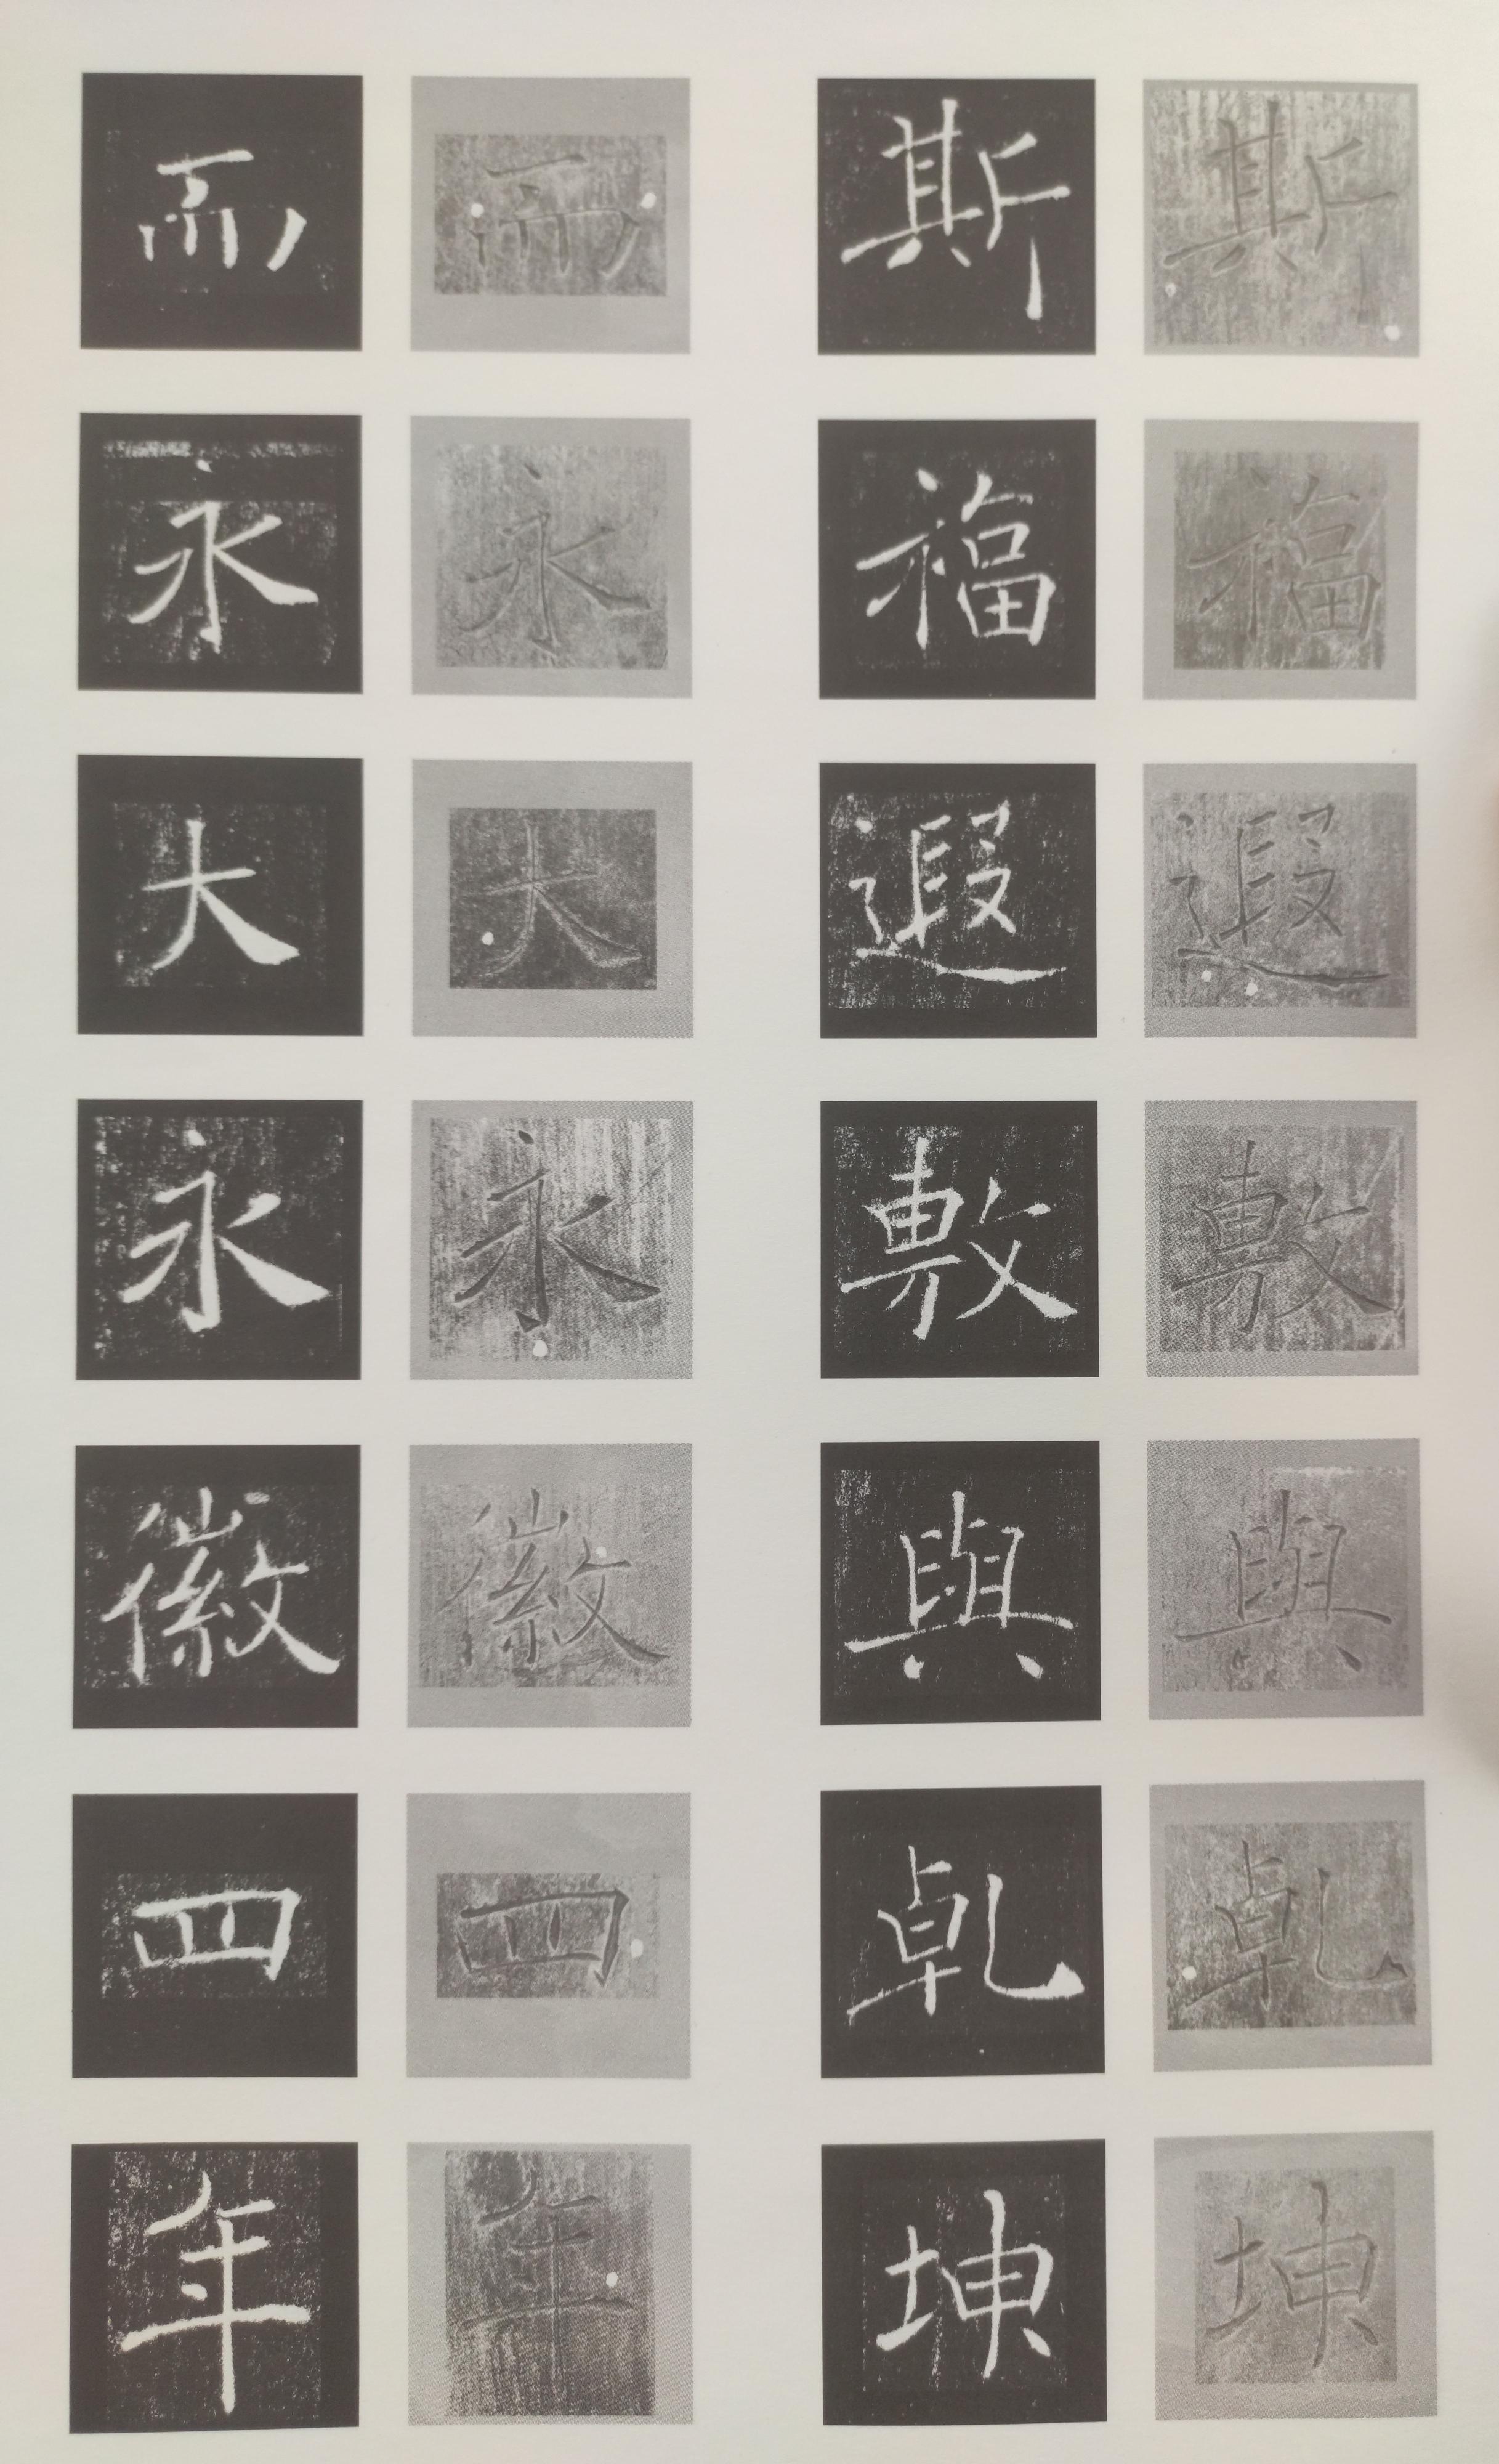 斯福遐敷與乹坤
斯福遐敷與乹坤
而永大永徽四年
而永大永徽四年